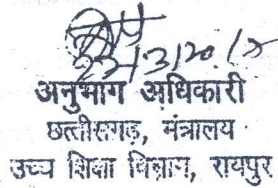 अनुभाग अधिकारी
छत्तीसगढ़, मंत्रालय
उच्च शिक्षा विभाग, रायपुर